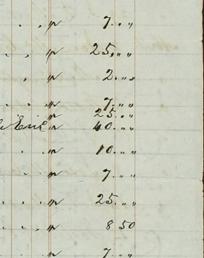 . . " 7. " "
. , " 25. " "
" 2. " "
. . . " 7. " "
" 25. " "
" 40. " "
. . " 10. " "
. . " 7. " "
. . . . " 25. " "
. . . . " 8 50
. . " 7. " "